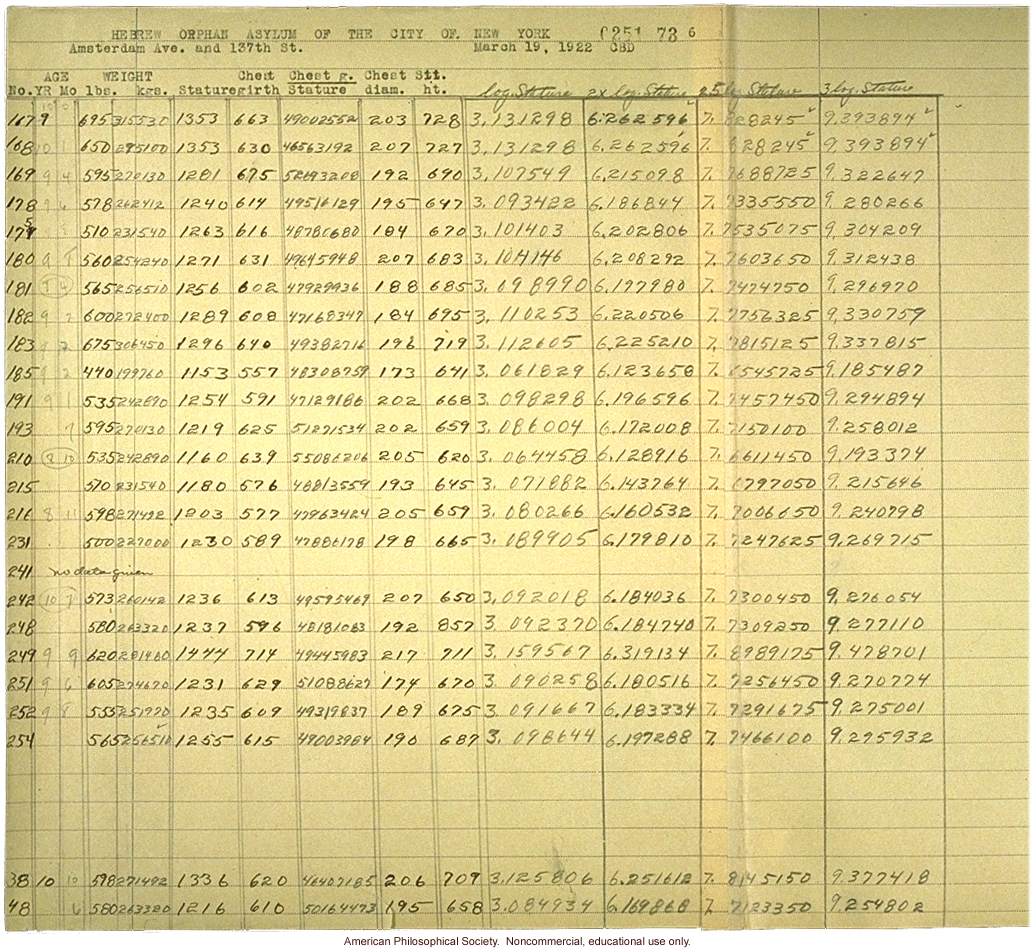 HEBREW ORPHAN ASYLUM OF THE CITY OF NEW YORK
Amsterdam Ave. and 137th St. March 19, 1922 CBD
AGE WEIGHT Chest Chest g. Chest Sit.
No. YR Mo lbs. kgs. Stature girth Stature diam. ht. log. Stature 2x log. Stature 2.5 log Stature 3 log. Stature
167 9 695 315530 1353 663 49002552 203 728 3.131298 6.262596 7.828245 9.393894
168 10 650 295100 1353 630 46563192 207 727 3.131298 6.262596 7.828245 9.393894
169 9 4 595 270130 1281 675 52693208 192 690 3.107549 6.215098 7.7688725 9.322647
178 9 6 578 262412 1240 614 49516129 195 647 3.093422 6.186844 7.7335550 9.280266
510 231540 1263 616 48780680 184 670 3.101403 6.202806 7.7535075 9.304209
180 9 560 254240 1271 631 49645948 207 683 3.104146 6.208292 7.7603650 9.312438
181 565 256510 1256 602 47929936 188 685 3.098990 6.197980 7.7474750 9.296970
182 9 2 600 272400 1289 608 47168347 184 695 3.110253 6.220506 7.7756325 9.330759
183 9 2 675 306450 1296 640 49382716 196 719 3.112605 6.225210 7.7815125 9.337815
185 9 2 440 199760 1153 557 48308759 173 641 3.061829 6.123658 7.6545725 9.185487
191 9 1 535 242890 1254 591 47129186 202 668 3.098298 6.196596 7.7457450 9.294894
193 7 595 270130 1219 625 51271534 202 659 3.086004 6.172008 7.7150100 9.258012
210 8 10 535 242890 1160 639 55086206 205 620 3.064458 6.128916 7.6611450 9.193374
215 510 231540 1180 576 48813559 193 645 3.071882 6.143764 7.6797050 9.215646
216 8 11 598 271492 1203 577 47963424 205 659 3.080266 6.160532 7.7006650 9.240798
231 500 227000 1230 589 47886178 198 665 3.089905 6.179810 7.7247625 9.269715
241 no data given
242 10 7 573 260142 1236 613 49595469 207 650 3.092018 6.184036 7.7300450 9.276054
248 580 263320 1237 596 48181083 192 857 3.092370 6.184740 7.7309250 9.277110
249 9 9 620 281480 1444 714 49445983 217 711 3.159567 6.319134 7.8989175 9.478701
251 9 6 605 274670 1231 629 51088627 174 670 3.090258 6.180516 7.7256450 9.270774
252 9 8 555 251970 1235 609 49319837 189 675 3.091667 6.183334 7.7291675 9.275001
254 565 256510 1255 615 49003984 190 687 3.098644 6.197288 7.7466100 9.295932
38 10 10 598 271492 1336 620 46407185 206 709 3.125806 6.251612 7.8145150 9.377418
48 6 580 263320 1216 610 50164473 195 658 3.084934 6.169868 7.7123350 9.254802
American Philosophical Society. Noncommercial, educational use only.